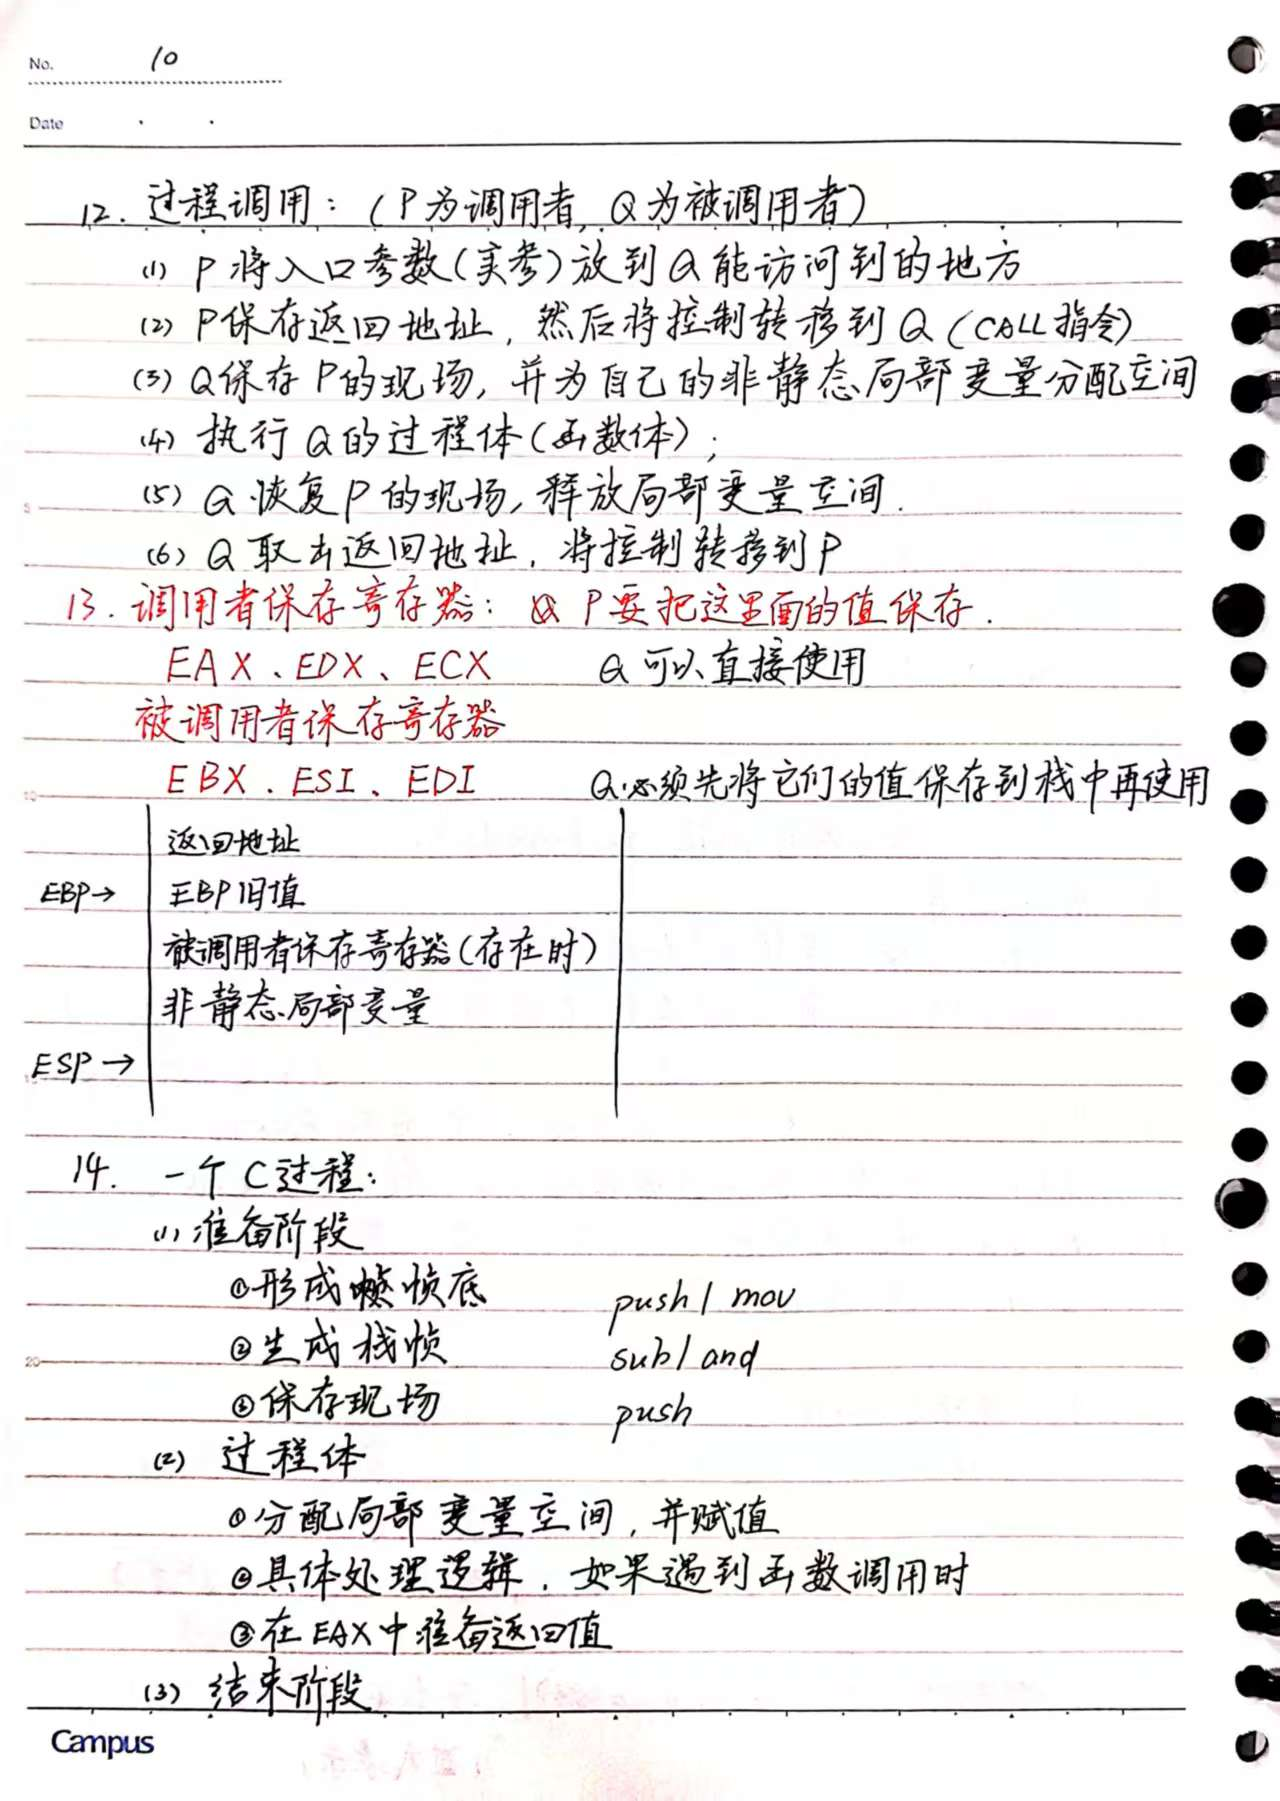 No. 10
Date
12. 过程调用：（P为调用者，Q为被调用者）
(1) P将入口参数(实参)放到Q能访问到的地方
(2) P保存返回地址，然后将控制转移到Q (CALL指令)
(3) Q保存P的现场，并为自己的非静态局部变量分配空间
(4) 执行Q的过程体(函数体)；
(5) Q恢复P的现场，释放局部变量空间.
(6) Q取出返回地址，将控制转移到P
13. 调用者保存寄存器： P要把这里面的值保存.
EAX、EDX、ECX Q可以直接使用
被调用者保存寄存器
EBX、ESI、EDI Q必须先将它们的值保存到栈中再使用
返回地址
EBP→ EBP旧值
被调用者保存寄存器(存在时)
非静态局部变量
ESP→
14. 一个C过程：
(1) 准备阶段
①形成帧底 push/mov
②生成栈帧 sub/and
③保存现场 push
(2) 过程体
①分配局部变量空间，并赋值
②具体处理逻辑，如果遇到函数调用时
③在EAX中准备返回值
(3) 结束阶段
5
10
15
20
Campus